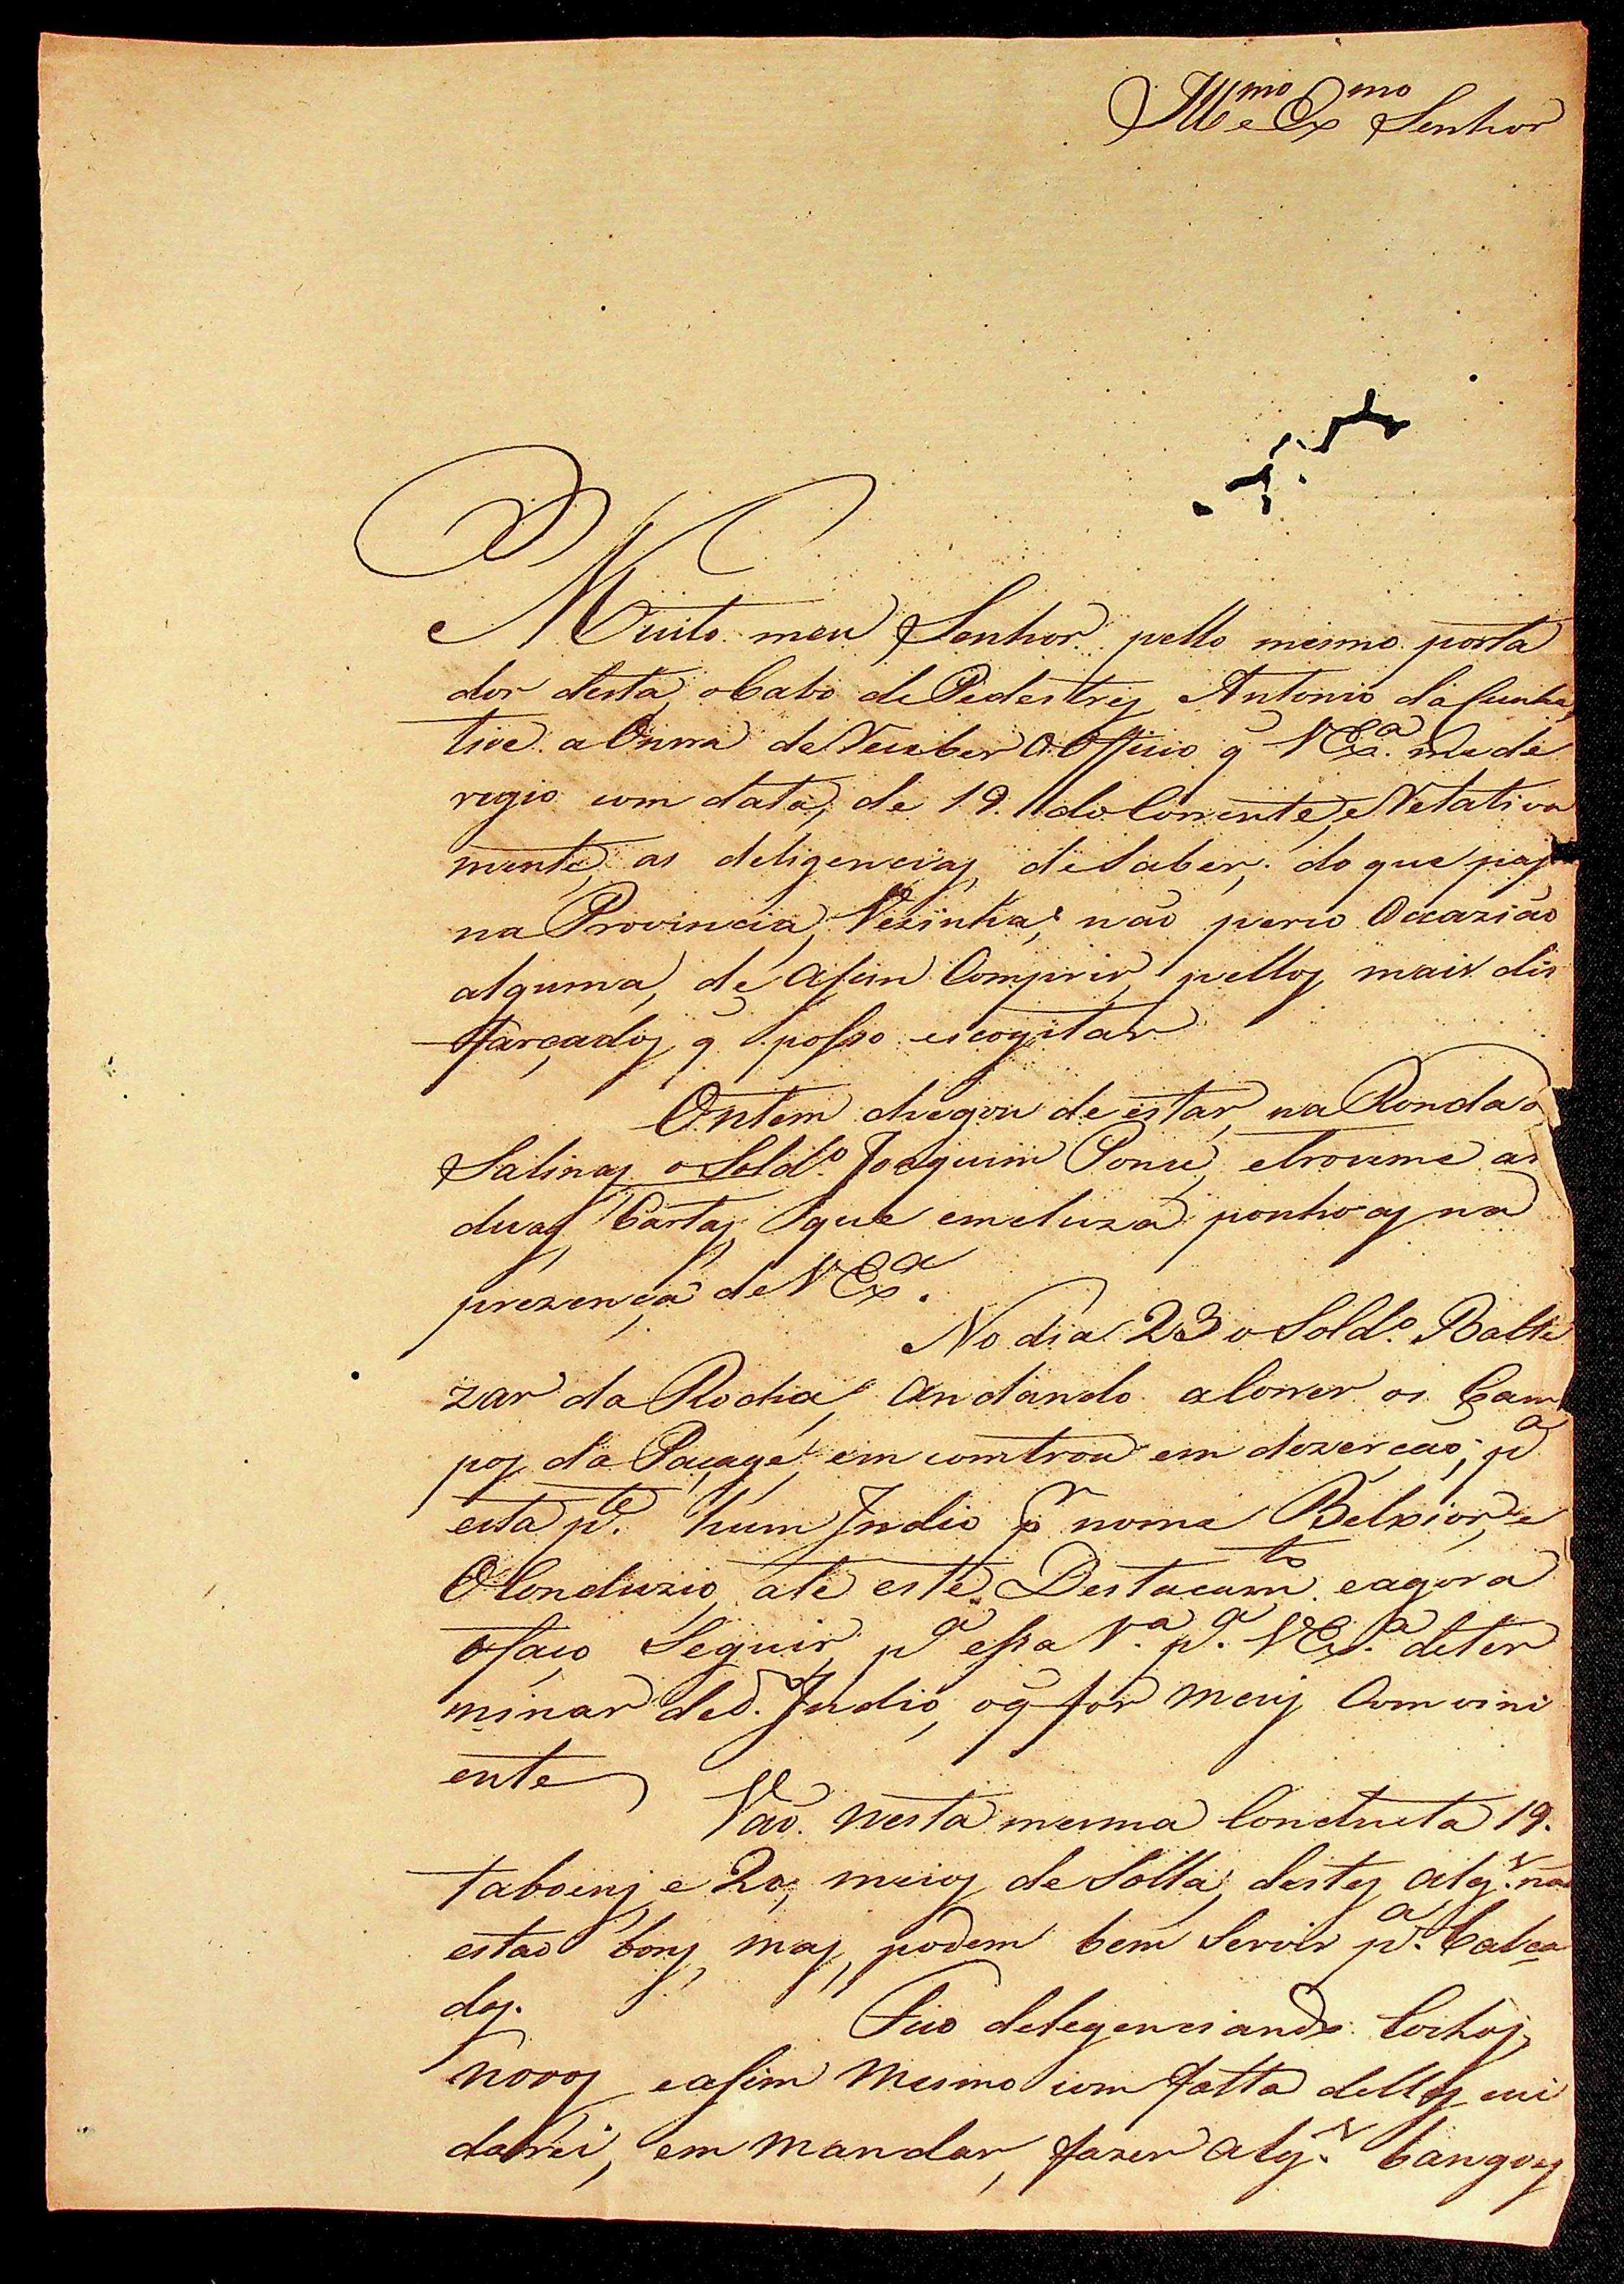 Ill.mo e Ex.mo Senhor
Muito meu Senhor pello mesmo porta
dor desta, o Cabo de Pedestres Antonio da Cunha,
tive a Onrra de Receber o Officio q̃ V Ex.a me de
regio com data, de 19. do Corrente, e Relativa
mente, as deligencias, de Saber, do que pas
na Provincia Vezinha; não perco Occazião
alguma, de assim Comprir, pellos mais dis
farçados, q̃ posso escogitar
Ontem chegou de estar, na Ronda
Salinas, o Sold.o Joaquim Ponce, e trouceme as
duas Cartas, que emcluza ponho as na
prezença de V Ex.a
No dia 23 o Sold.o Balte
zar da Rocha, andando a Correr os Cam
pos da Pacage, em comtrou em dezerção; p.a
esta p.te hum Indio p.r nome Belxior, e
O Conduzio, ate este Destacam.to e agora
o faço Seguir, p.a essa V.a p.a V Ex.a deter
minar do d. Indio, o q̃ for mais Comvini
ente
Vão nesta mesma Conducta 19.
taboens e 20, meios de Solla, destes alg.s não
estão bons, mas, podem bem Servir p.a Calça
dos.
Fico delegenciando Cochos,
novos e assim mesmo com falta delles cui
darei, em mandar, fazer alg.s bangoes